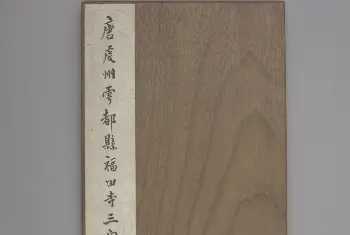 唐虔州雩都縣福田寺三門